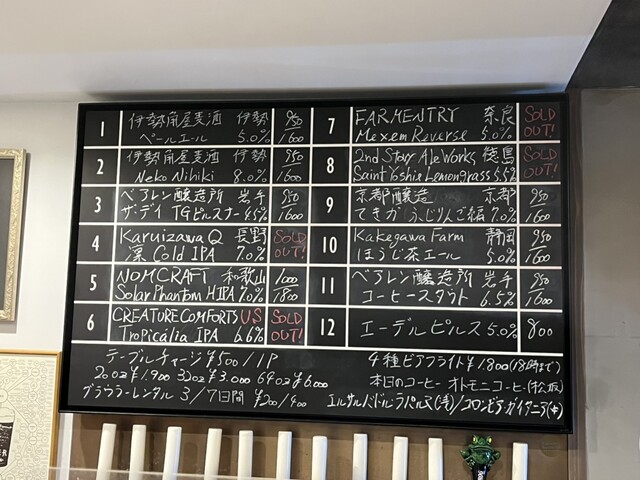 1 伊勢角屋麦酒 伊勢 950
ペールエール 5.0% 1600
2 伊勢角屋麦酒 伊勢 950
Neko Nihiki 8.0% 1600
3 ベアレン醸造所 岩手 950
ザ・デイ TGピルスナー 4.5% 1600
4 Karuizawa Q 長野 SOLD
凛 Cold IPA 7.0% OUT!
5 NOMCRAFT 和歌山 1000
Solar Phantom HIPA 7.0% 1800
6 CREATURE COMFORTS US SOLD
Tropicália IPA 6.6% OUT!
7 FARMENTRY 奈良 SOLD
Mexem Reverse 5.0% OUT!
8 2nd Story Ale Works 徳島 SOLD
Saint Yoshin Lemongrass 5.5% OUT!
9 京都醸造 京都 950
てきか ふじりんご編 7.0% 1600
10 Kakegawa Farm 静岡 950
ほうじ茶エール 5.0% 1600
11 ベアレン醸造所 岩手 950
コーヒースタウト 6.5% 1600
12 エーデルピルス 5.0% 800
テーブルチャージ ¥500/1P
20oz ¥1.900 32oz ¥3.000 64oz ¥6.000
グラウラーレンタル 3/7日間 ¥200/400
4種ビアフライト ¥1.800 (18時まで)
本日のコーヒー オトモニコーヒー(松阪)
エルサルバドル・ラパルマ(浅)/コロンビア・ガイタニア(中)